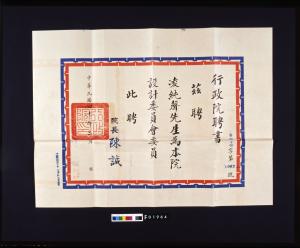 行政院聘書
茲聘
凌純聲先生為本院
設計委員會委員
此聘
院長陳誠
中華民國
E01964